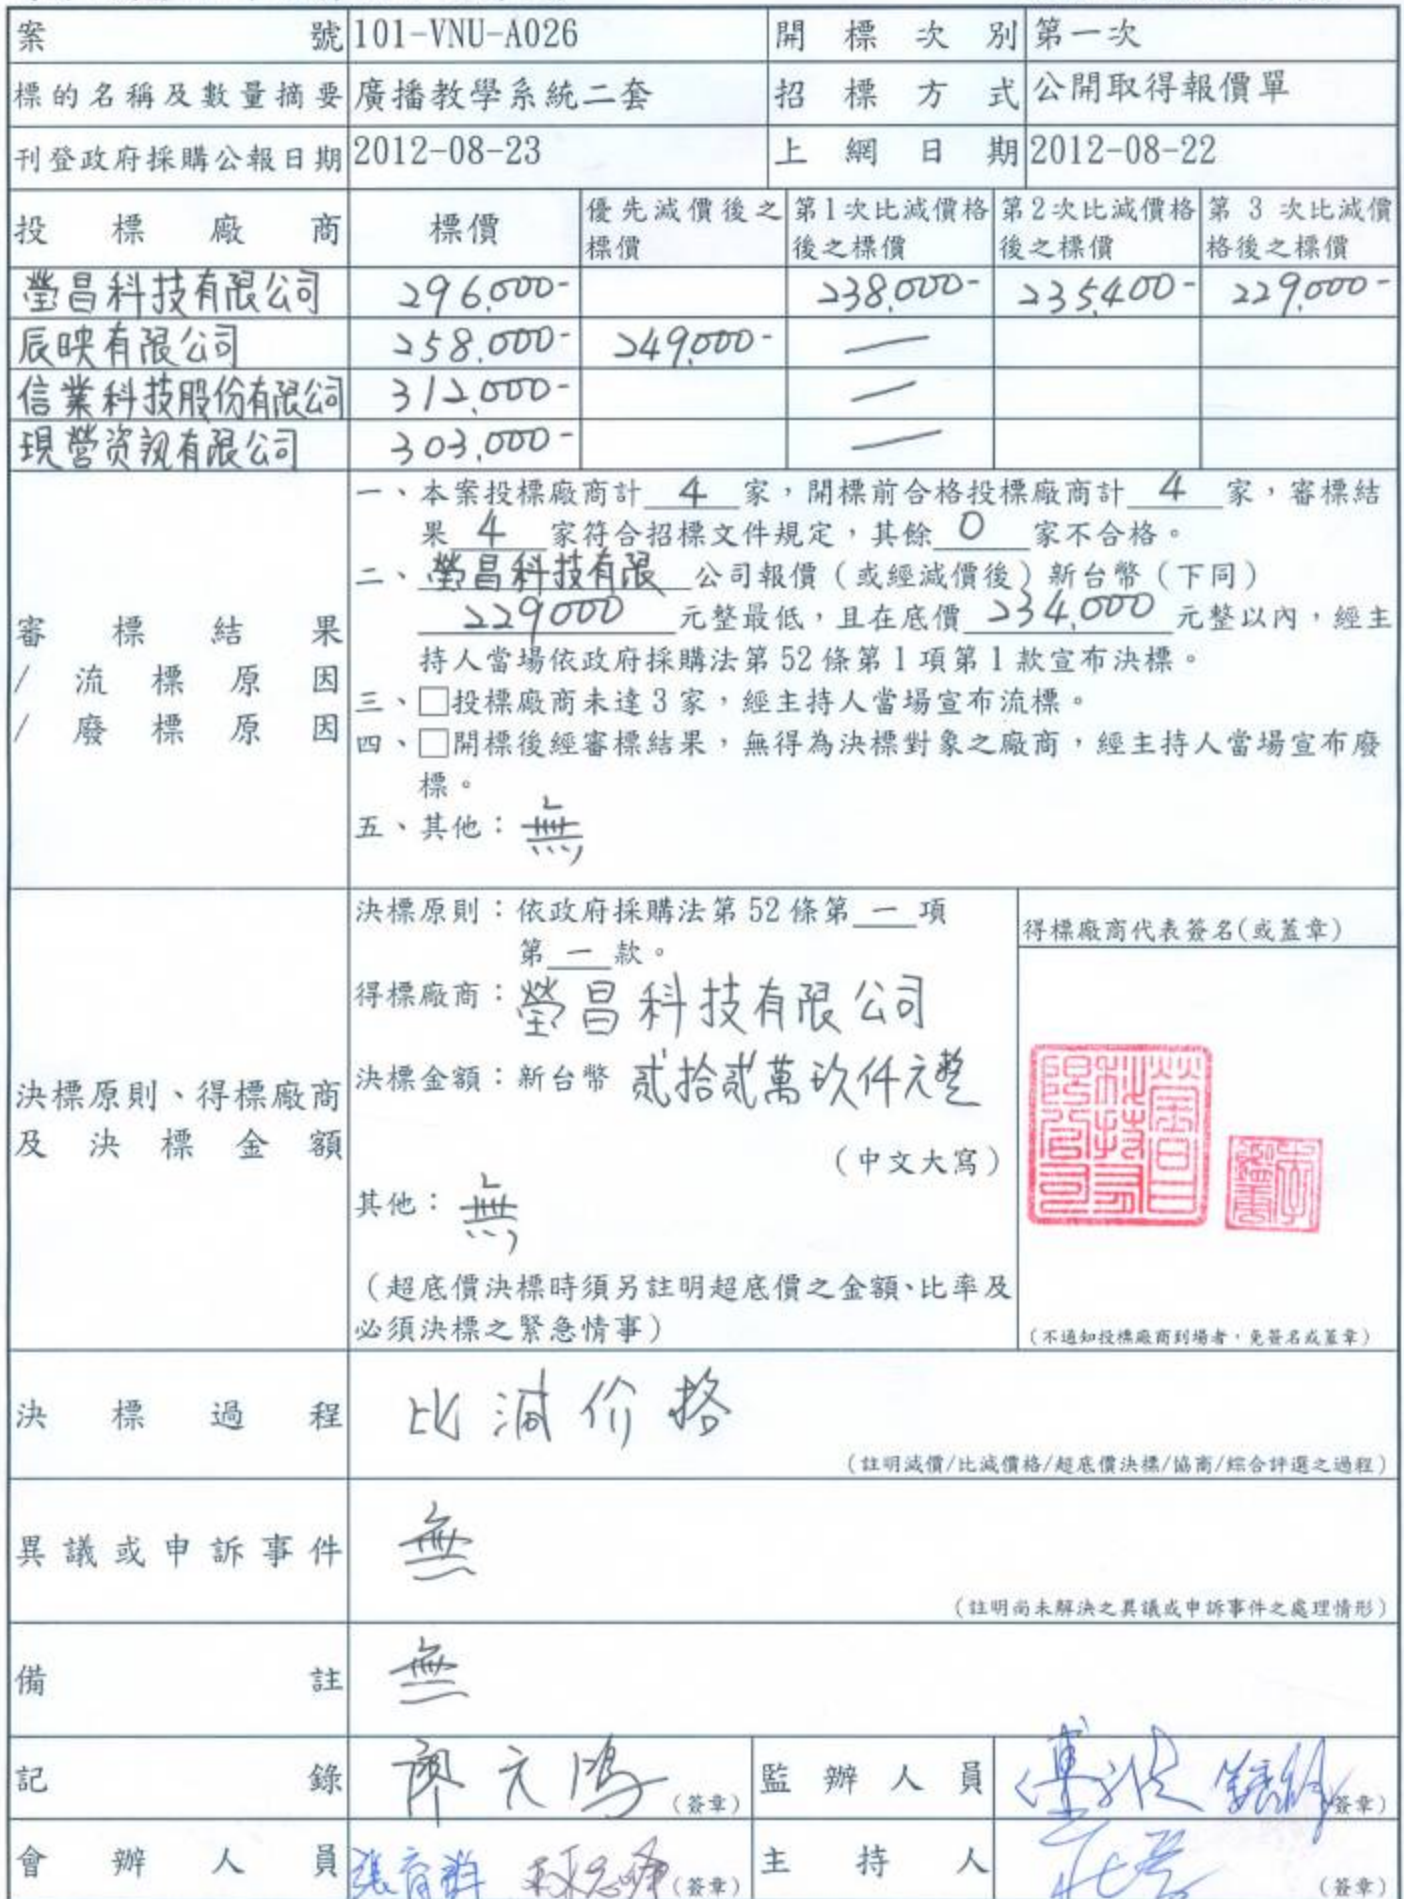 案號 101-VNU-A026 開標次別 第一次
標的名稱及數量摘要 廣播教學系統二套 招標方式 公開取得報價單
刊登政府採購公報日期 2012-08-23 上網日期 2012-08-22
投標廠商 標價 優先減價後之標價 第1次比減價格後之標價 第2次比減價格後之標價 第3次比減價格後之標價
瑩昌科技有限公司 296,000- 238,000- 235,400- 229,000-
辰映有限公司 258,000- 249,000- —
信業科技股份有限公司 312,000- —
現營资訊有限公司 303,000- —
審標結果
/流標原因
/廢標原因
一、本案投標廠商計 4 家，開標前合格投標廠商計 4 家，審標結
果 4 家符合招標文件規定，其餘 0 家不合格。
二、瑩昌科技有限 公司報價（或經減價後）新台幣（下同）
229000 元整最低，且在底價 234,000 元整以內，經主
持人當場依政府採購法第52條第1項第1款宣布決標。
三、□投標廠商未達3家，經主持人當場宣布流標。
四、□開標後經審標結果，無得為決標對象之廠商，經主持人當場宣布廢
標。
五、其他：無
決標原則、得標廠商
及決標金額
決標原則：依政府採購法第52條第 一 項
第 一 款。
得標廠商：瑩昌科技有限公司
決標金額：新台幣 貳拾貳萬玖仟元整
（中文大寫）
其他：無
（超底價決標時須另註明超底價之金額、比率及
必須決標之緊急情事）
得標廠商代表簽名(或蓋章)
（不通知投標廠商到場者，免簽名或蓋章）
決標過程 比減价格
（註明減價/比減價格/超底價決標/協商/綜合評選之過程）
異議或申訴事件 無
（註明尚未解決之異議或申訴事件之處理情形）
備註 無
記錄 廖元鴻 （簽章） 監辦人員 （簽章）
會辦人員 （簽章） 主持人 （簽章）